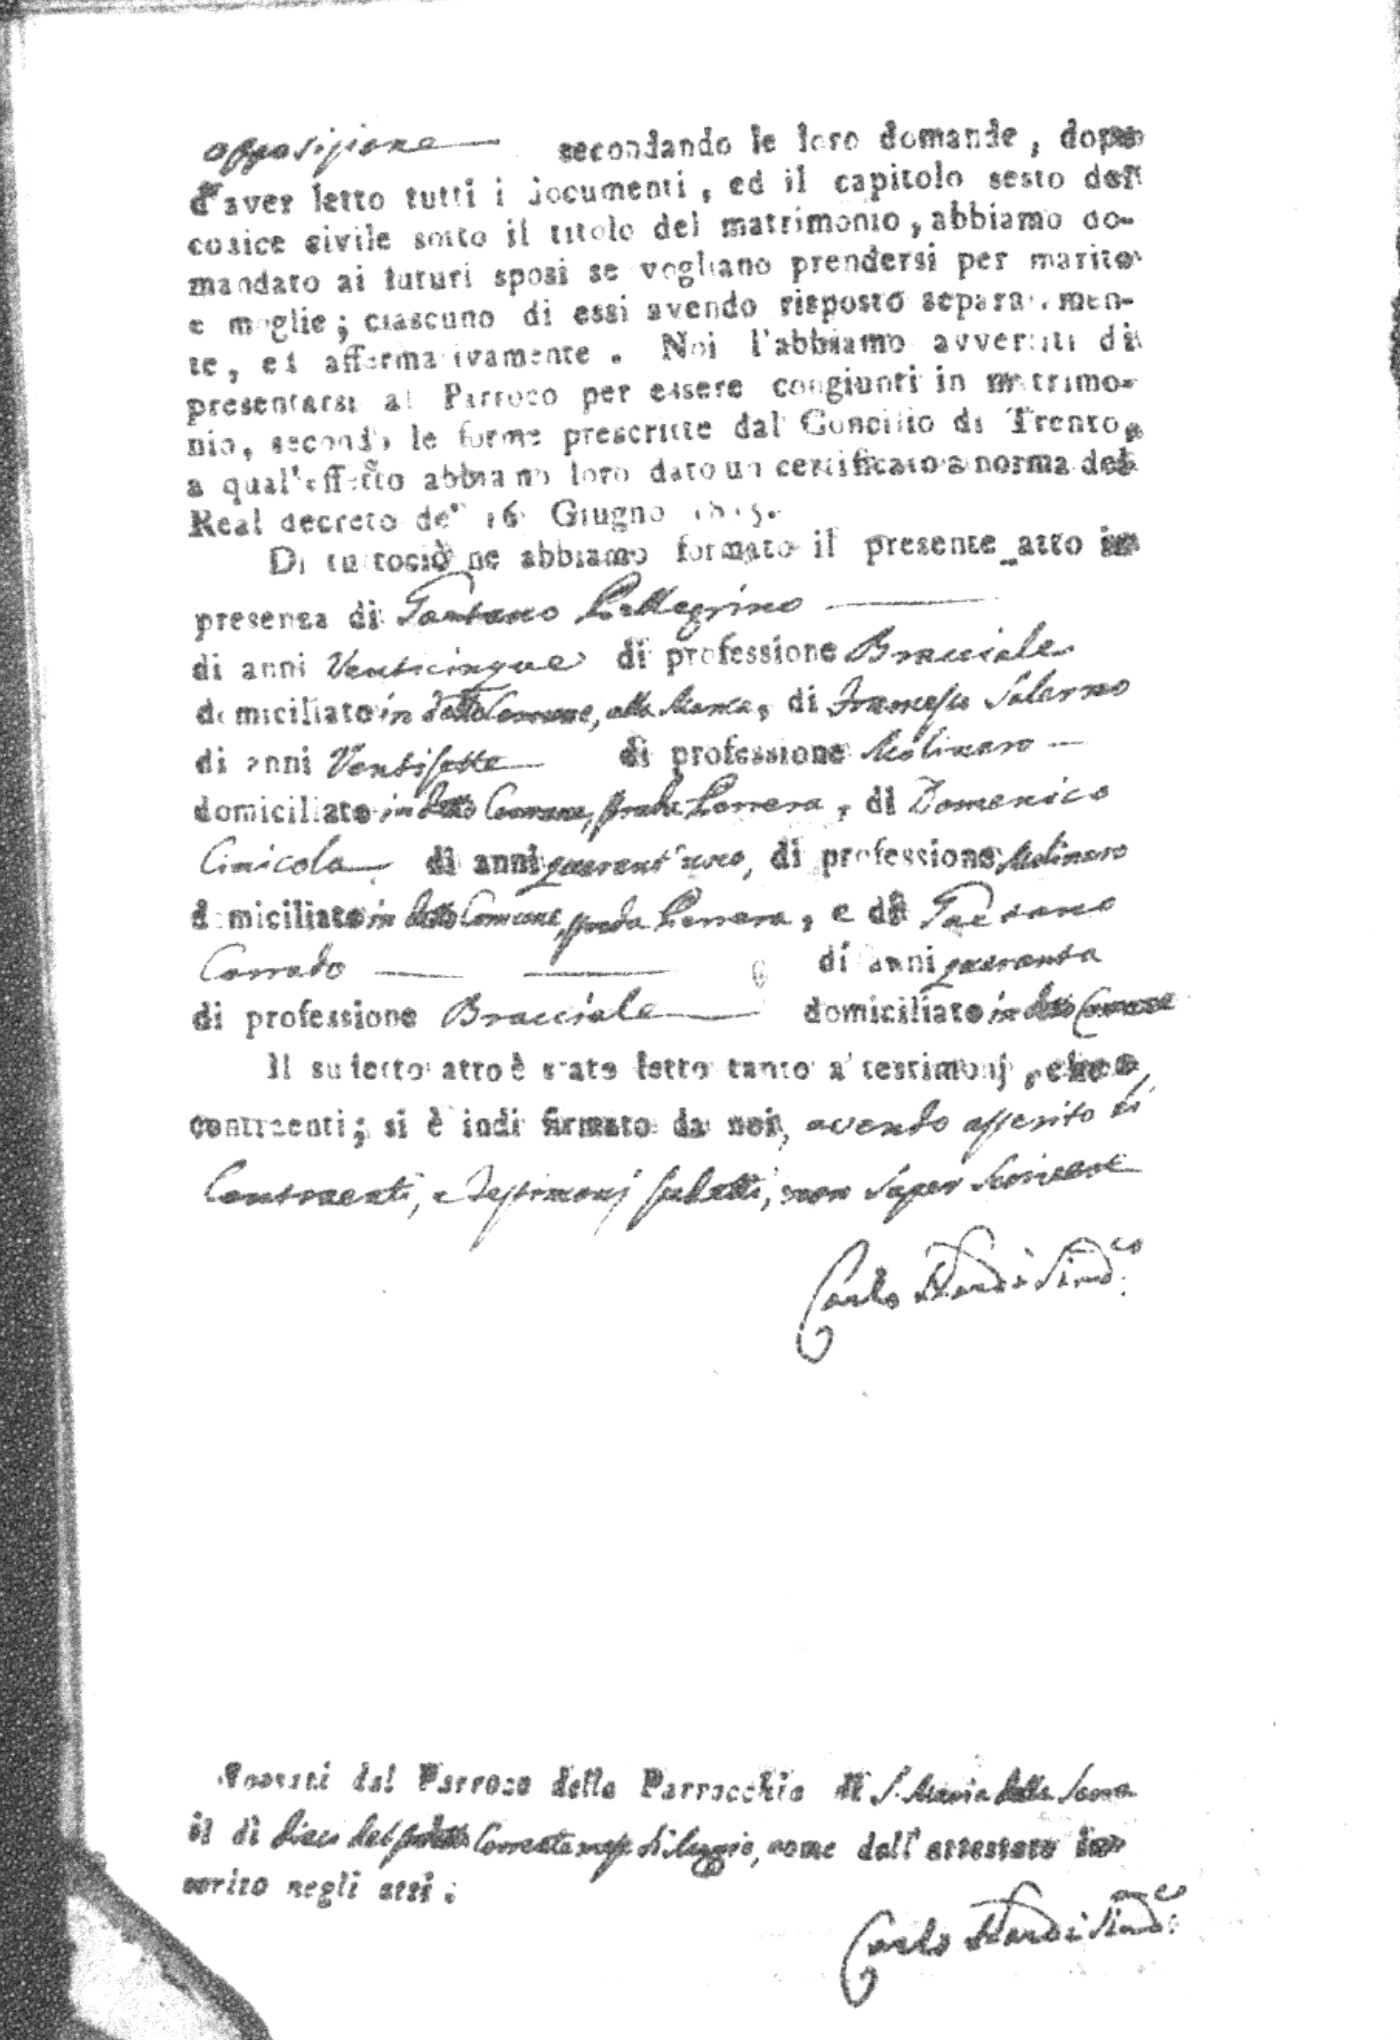 opposizione secondando le loro domande, dopo
d'aver letto tutti i documenti, ed il capitolo sesto del
codice civile sotto il titolo del matrimonio, abbiamo do-
mandato ai futuri sposi se vogliano prendersi per marito
e moglie; ciascuno di essi avendo risposto separatamen-
te, ed affermativamente. Noi l'abbiamo avvertiti di
presentarsi al Parroco per essere congiunti in matrimo-
nio, secondo le forme prescritte dal Concilio di Trento,
a qual'effetto abbiamo loro dato un certificato a norma del
Real decreto de' 16 Giugno 1815.
Di tuttociò ne abbiamo formato il presente atto in
presenza di Gaetano Pellegrino
di anni Venticinque di professione Bracciale
domiciliato in detto Comune, alla di Francesco Salerno
di anni Ventisette di professione Molinaro
domiciliato in detto Comune, strada Ferrera, di Domenico
Cinicola di anni quarant'uno, di professione Molinaro
domiciliato in detto Comune, strada Ferrera, e di Gaetano
Corrado di anni quaranta
di professione Bracciale domiciliato in detto Comune
Il sudetto atto è stato letto tanto a' testimonj, che a
contraenti; si è indi firmato da noi, avendo asserito li
Contraenti, e Testimonj sudetti, non saper scrivere
Carlo Sind.co
dal Parroco della Parrocchia di S. Maria della
il dì dieci del sudetto Corrente mese di Maggio, come dall'attestato in-
serito negli atti.
Carlo Sind.co